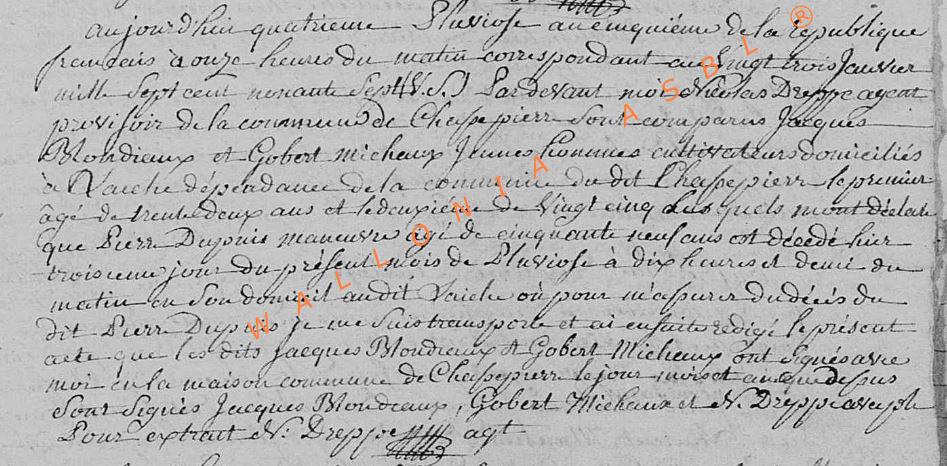 aujourd'hui quatrieme Pluviose an cinquième de la republique
francais à onze heures du matin correspondant au vingt trois Janvier
mill Sept cent nonante Sept (V.S.) Pardevant moi Nicolas Dreppe agent
provisoir de la commune de Chassepierr Sont comparus Jacques
Blondieux et Gobert Michaux Jeunes hommes cultivateurs domiciliés
à Laiche dépendance de la commune du dit Chassepierr le premier
âgé de trente deux ans et le deuxieme de Vingt cinq Lesquels m'ont déclaré
que Pierr Dupuis maneuvre agé de cinquante neuf ans est décedé hier
troisieme jour du présent mois de Pluviose à dix heures et demi du
matin en Son domicil audit Laiche où pour m'assurer du décès du
dit Pierr Dupuis je me Suis transporté et ai ensuite redigé le présent
acte que les dits Jacques Blondieux et Gobert Michaux ont Signés avec
moi en la maison commune de Chassepierr le jour mois et an que dessus
Sont Signés Jacques Blondieux, Gobert Michaux et N. Dreppe
Pour extrait N. Dreppe agt
WALLONIA ASBL ®